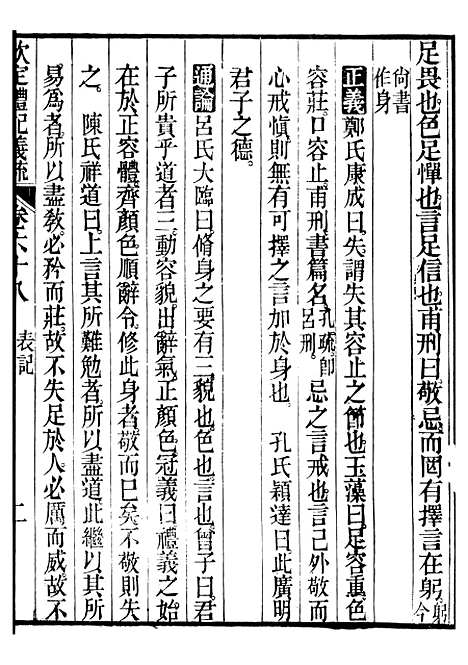 足畏也色足憚也言足信也甫刑曰敬忌而罔有擇言在躬躬今
尚書
作身
正義鄭氏康成曰失謂失其容止之節也玉藻曰足容重色
容莊口容止甫刑書篇名孔疏即呂刑忌之言戒也言己外敬而
心戒慎則無有可擇之言加於身也 孔氏穎達曰此廣明
君子之德
通論呂氏大臨曰脩身之要有三貌也色也言也曾子曰君
子所貴乎道者三動容貌出辭氣正顏色冠義曰禮義之始
在於正容體齊顏色順辭令修此身者敬而已矣不敬則失
之 陳氏祥道曰上言其所難勉者所以盡道此繼以其所
易為者所以盡敎必矜而莊故不失足於人必厲而威故不
欽定禮記義疏 卷六十八 表記 二